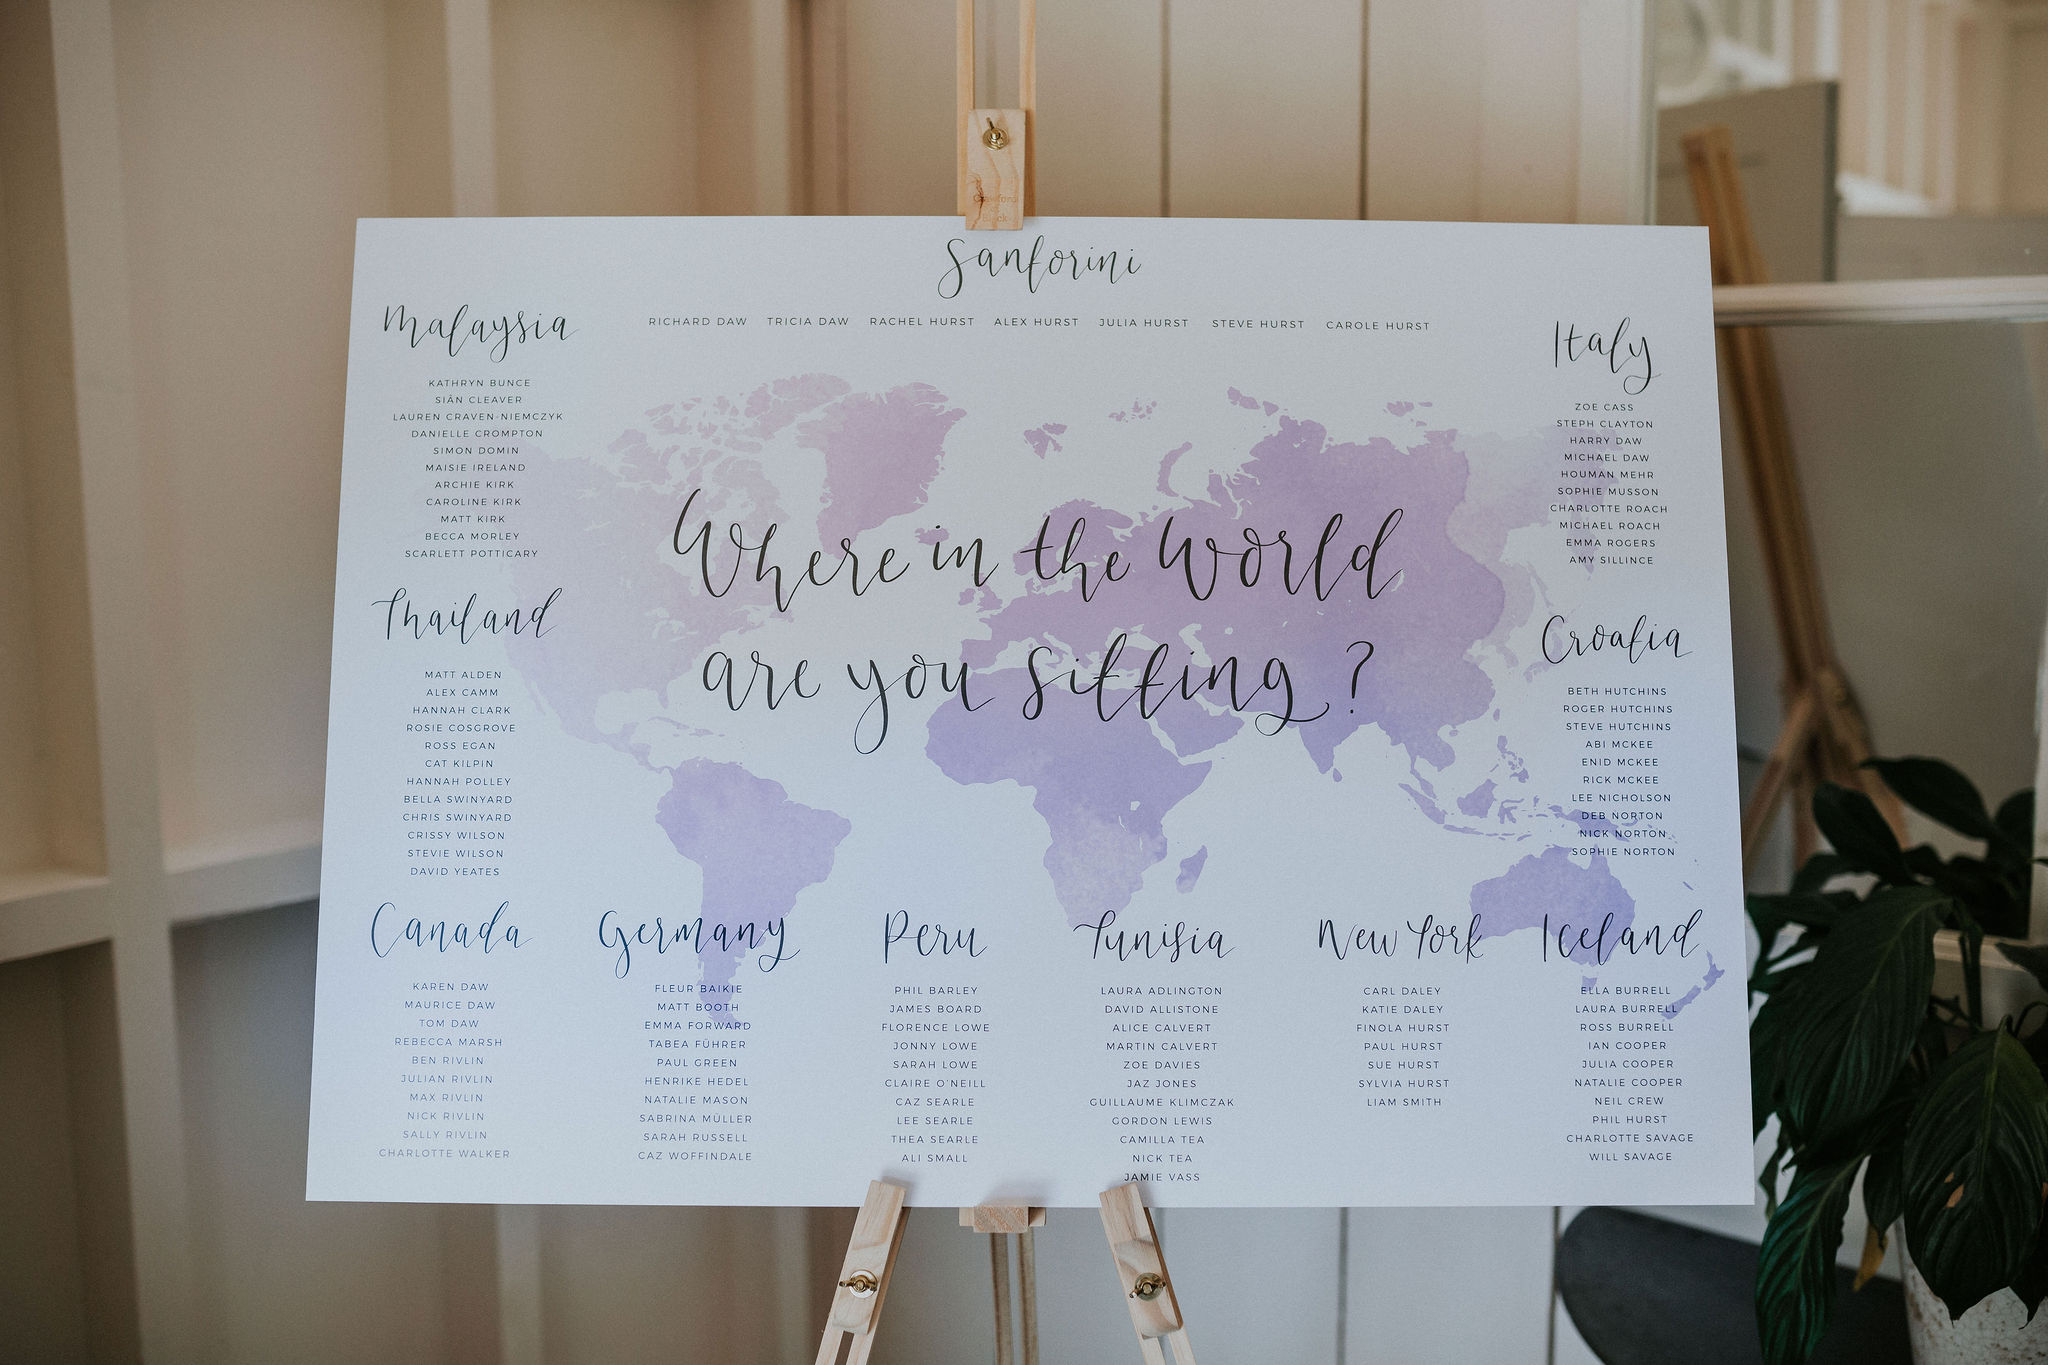 Crawford
Black
Santorini
RICHARD DAW TRICIA DAW RACHEL HURST ALEX HURST JULIA HURST STEVE HURST CAROLE HURST
Malaysia
KATHRYN BUNCE
SIÂN CLEAVER
LAUREN CRAVEN-NIEMCZYK
DANIELLE CROMPTON
SIMON DOMIN
MAISIE IRELAND
ARCHIE KIRK
CAROLINE KIRK
MATT KIRK
BECCA MORLEY
SCARLETT POTTICARY
Italy
ZOE CASS
STEPH CLAYTON
HARRY DAW
MICHAEL DAW
HOUMAN MEHR
SOPHIE MUSSON
CHARLOTTE ROACH
MICHAEL ROACH
EMMA ROGERS
AMY SILLINCE
Where in the World
are you sitting ?
Thailand
MATT ALDEN
ALEX CAMM
HANNAH CLARK
ROSIE COSGROVE
ROSS EGAN
CAT KILPIN
HANNAH POLLEY
BELLA SWINYARD
CHRIS SWINYARD
CRISSY WILSON
STEVIE WILSON
DAVID YEATES
Croatia
BETH HUTCHINS
ROGER HUTCHINS
STEVE HUTCHINS
ABI MCKEE
ENID MCKEE
RICK MCKEE
LEE NICHOLSON
DEB NORTON
NICK NORTON
SOPHIE NORTON
Canada
KAREN DAW
MAURICE DAW
TOM DAW
REBECCA MARSH
BEN RIVLIN
JULIAN RIVLIN
MAX RIVLIN
NICK RIVLIN
SALLY RIVLIN
CHARLOTTE WALKER
Germany
FLEUR BAIKIE
MATT BOOTH
EMMA FORWARD
TABEA FÜHRER
PAUL GREEN
HENRIKE HEDEL
NATALIE MASON
SABRINA MÜLLER
SARAH RUSSELL
CAZ WOFFINDALE
Peru
PHIL BARLEY
JAMES BOARD
FLORENCE LOWE
JONNY LOWE
SARAH LOWE
CLAIRE O'NEILL
CAZ SEARLE
LEE SEARLE
THEA SEARLE
ALI SMALL
Tunisia
LAURA ADLINGTON
DAVID ALLISTONE
ALICE CALVERT
MARTIN CALVERT
ZOE DAVIES
JAZ JONES
GUILLAUME KLIMCZAK
GORDON LEWIS
CAMILLA TEA
NICK TEA
JAMIE VASS
New York
CARL DALEY
KATIE DALEY
FINOLA HURST
PAUL HURST
SUE HURST
SYLVIA HURST
LIAM SMITH
Iceland
ELLA BURRELL
LAURA BURRELL
ROSS BURRELL
IAN COOPER
JULIA COOPER
NATALIE COOPER
NEIL CREW
PHIL HURST
CHARLOTTE SAVAGE
WILL SAVAGE